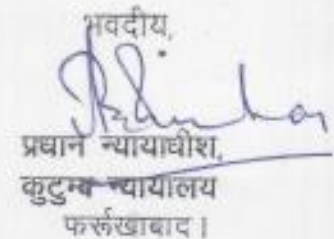 भवदीय,
प्रधान न्यायाधीश,
कुटुम्ब न्यायालय
फर्रुखाबाद।